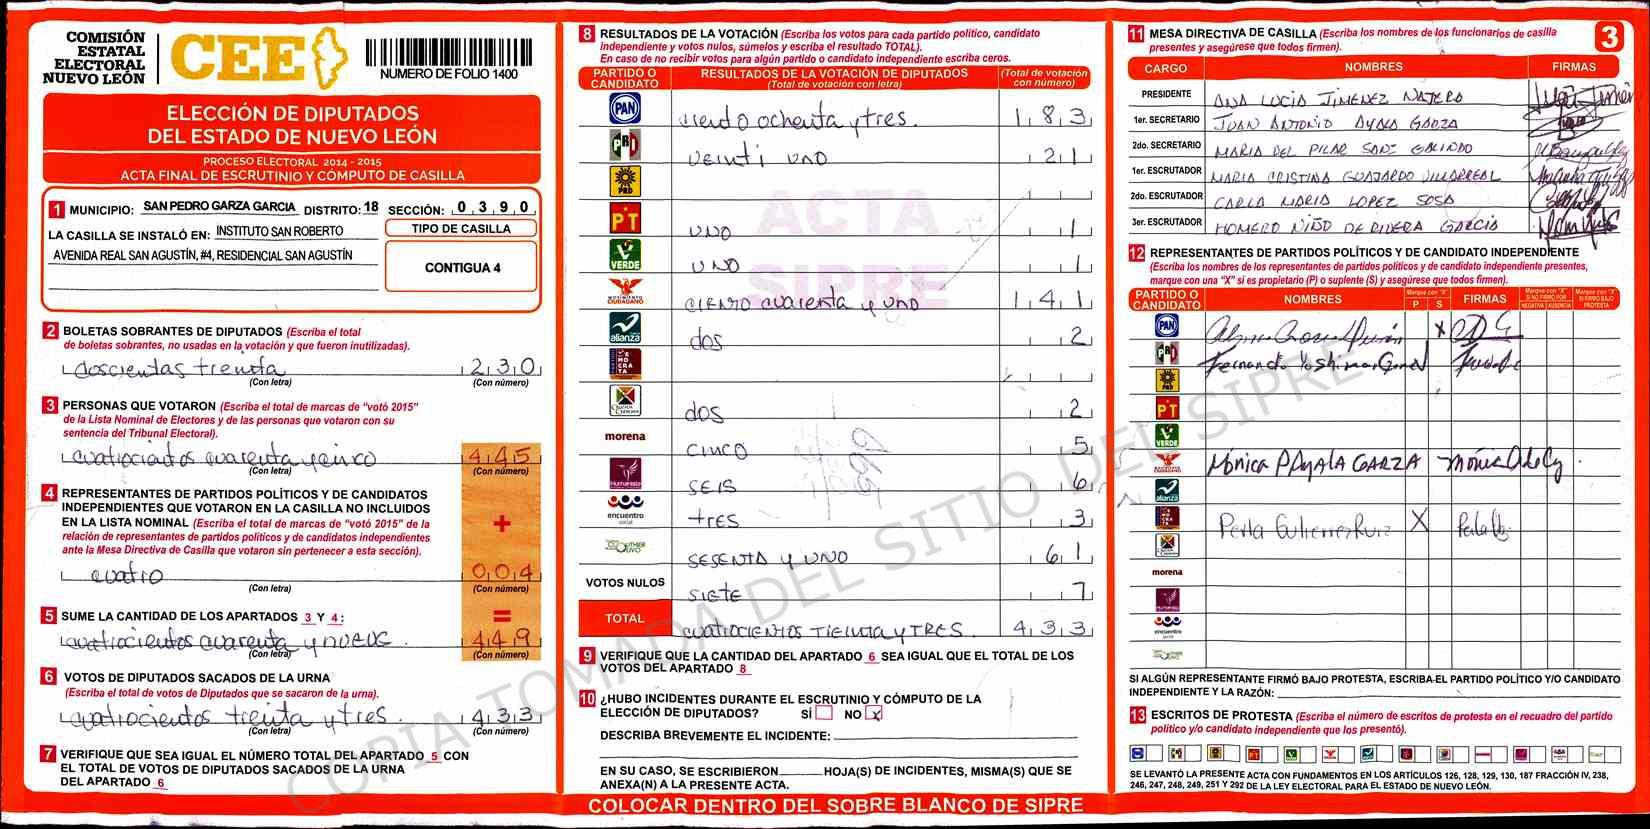 COMISIÓN
ESTATAL
ELECTORAL
NUEVO LEÓN
CEE
NUMERO DE FOLIO 1400
ELECCIÓN DE DIPUTADOS
DEL ESTADO DE NUEVO LEÓN
PROCESO ELECTORAL 2014 - 2015
ACTA FINAL DE ESCRUTINIO Y CÓMPUTO DE CASILLA
1 MUNICIPIO: SAN PEDRO GARZA GARCIA DISTRITO: 18 SECCIÓN: 0390
LA CASILLA SE INSTALÓ EN: INSTITUTO SAN ROBERTO
AVENIDA REAL SAN AGUSTÍN, #4, RESIDENCIAL SAN AGUSTÍN
TIPO DE CASILLA
CONTIGUA 4
2 BOLETAS SOBRANTES DE DIPUTADOS (Escriba el total
de boletas sobrantes, no usadas en la votación y que fueron inutilizadas).
doscientas treinta 230
(Con letra) (Con número)
3 PERSONAS QUE VOTARON (Escriba el total de marcas de "votó 2015"
de la Lista Nominal de Electores y de las personas que votaron con su
sentencia del Tribunal Electoral).
cuatrocientos cuarenta y cinco 445
(Con letra) (Con número)
4 REPRESENTANTES DE PARTIDOS POLÍTICOS Y DE CANDIDATOS
INDEPENDIENTES QUE VOTARON EN LA CASILLA NO INCLUIDOS
EN LA LISTA NOMINAL (Escriba el total de marcas de "votó 2015" de la
relación de representantes de partidos políticos y de candidatos independientes
ante la Mesa Directiva de Casilla que votaron sin pertenecer a esta sección).
+
cuatro 004
(Con letra) (Con número)
5 SUME LA CANTIDAD DE LOS APARTADOS 3 Y 4: =
cuatrocientos cuarenta y nueve 449
(Con letra) (Con número)
6 VOTOS DE DIPUTADOS SACADOS DE LA URNA
(Escriba el total de votos de Diputados que se sacaron de la urna).
cuatrocientos treinta y tres. 433
(Con letra) (Con número)
7 VERIFIQUE QUE SEA IGUAL EL NÚMERO TOTAL DEL APARTADO 5 CON
EL TOTAL DE VOTOS DE DIPUTADOS SACADOS DE LA URNA
DEL APARTADO 6
8 RESULTADOS DE LA VOTACIÓN (Escriba los votos para cada partido político, candidato
independiente y votos nulos, súmelos y escriba el resultado TOTAL).
En caso de no recibir votos para algún partido o candidato independiente escriba ceros.
PARTIDO O CANDIDATO RESULTADOS DE LA VOTACIÓN DE DIPUTADOS (Total de votación con letra) (Total de votación con número)
PAN ciento ochenta y tres. 183
PRI veinti uno 21
PRD
PT UNO 1
VERDE UNO 1
MOVIMIENTO CIUDADANO CIENTO cuarenta y UNO 141
alianza dos 2
DEMOCRATA
dos 2
morena cinco 5
Humanista SEIS 6
encuentro social tres 3
SESENTA y UNO 61
VOTOS NULOS SIETE 7
TOTAL cuatrocientos treinta y TRES. 433
ACTA
SIPRE
9 VERIFIQUE QUE LA CANTIDAD DEL APARTADO 6 SEA IGUAL QUE EL TOTAL DE LOS
VOTOS DEL APARTADO 8
10 ¿HUBO INCIDENTES DURANTE EL ESCRUTINIO Y CÓMPUTO DE LA
ELECCIÓN DE DIPUTADOS? SÍ NO X
DESCRIBA BREVEMENTE EL INCIDENTE:
EN SU CASO, SE ESCRIBIERON HOJA(S) DE INCIDENTES, MISMA(S) QUE SE
ANEXA(N) A LA PRESENTE ACTA.
COLOCAR DENTRO DEL SOBRE BLANCO DE SIPRE
3
11 MESA DIRECTIVA DE CASILLA (Escriba los nombres de los funcionarios de casilla
presentes y asegúrese que todos firmen).
CARGO NOMBRES FIRMAS
PRESIDENTE ANA LUCIA JIMENEZ NAJERA
1er. SECRETARIO JUAN ANTONIO AYALA GARZA
2do. SECRETARIO MARIA DEL PILAR SADE GALINDO
1er. ESCRUTADOR MARIA CRISTINA GUAJARDO VILLARREAL
2do. ESCRUTADOR CARLA MARIA LOPEZ SOSA
3er. ESCRUTADOR HOMERO NIÑO DE RIVERA GARCIA
12 REPRESENTANTES DE PARTIDOS POLÍTICOS Y DE CANDIDATO INDEPENDIENTE
(Escriba los nombres de los representantes de partidos políticos y de candidato independiente presentes,
marque con una "X" si es propietario (P) o suplente (S) y asegúrese que todos firmen).
PARTIDO O CANDIDATO NOMBRES Marque con "X" P S FIRMAS Marque con "X" SI NO FIRMÓ POR NEGATIVA AUSENCIA Marque con "X" SI FIRMÓ BAJO PROTESTA
PAN X
PRI Fernando
PRD
PT
VERDE
Mónica P AYALA GARZA
alianza
Perla Gutierrez Ruiz X
morena
Humanista
encuentro social
SI ALGÚN REPRESENTANTE FIRMÓ BAJO PROTESTA, ESCRIBA EL PARTIDO POLÍTICO Y/O CANDIDATO
INDEPENDIENTE Y LA RAZÓN:
13 ESCRITOS DE PROTESTA (Escriba el número de escritos de protesta en el recuadro del partido
político y/o candidato independiente que los presentó).
SE LEVANTÓ LA PRESENTE ACTA CON FUNDAMENTOS EN LOS ARTÍCULOS 126, 128, 129, 130, 187 FRACCIÓN IV, 238,
246, 247, 248, 249, 251 Y 292 DE LA LEY ELECTORAL PARA EL ESTADO DE NUEVO LEÓN.
COPIA TOMADA DEL SITIO DEL SIPRE